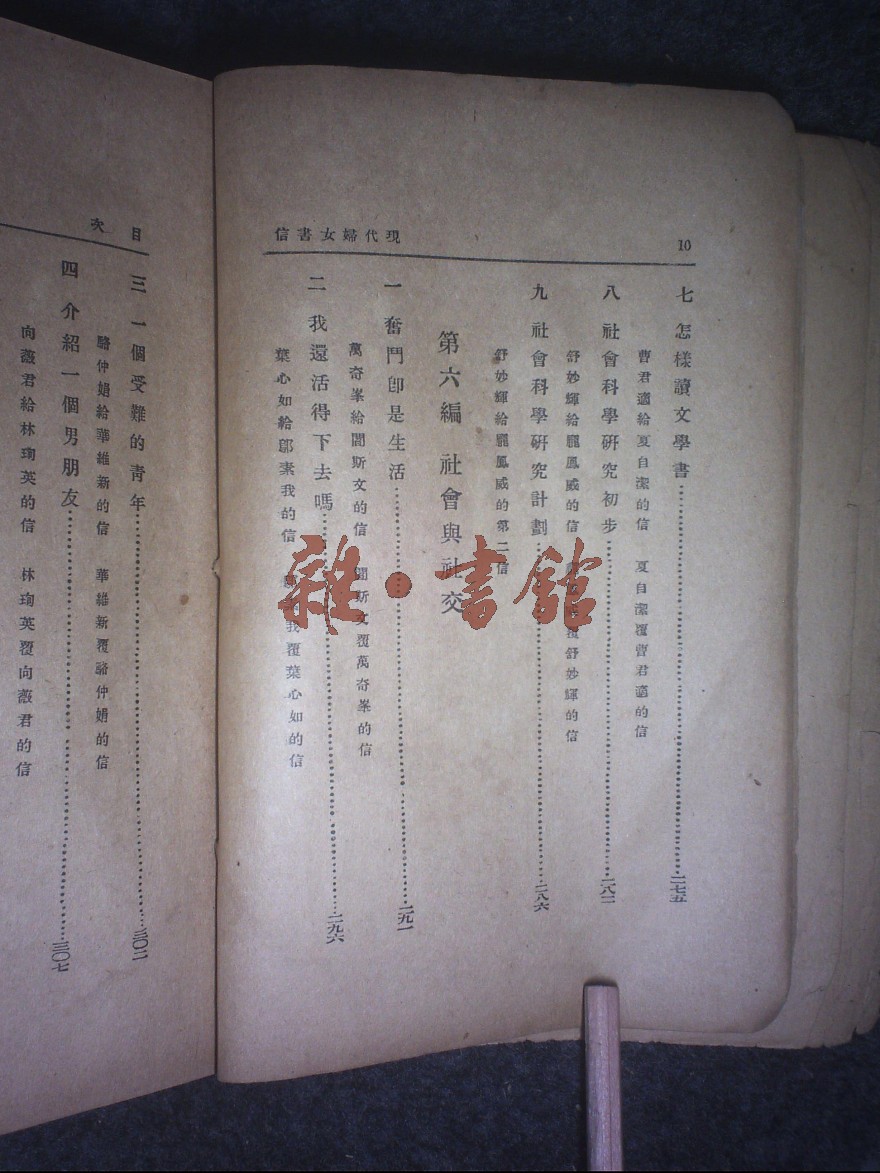 現代婦女書信
10
七 怎樣讀文學書……二七五
曹君適給夏自潔的信 夏自潔覆曹君適的信
八 社會科學硏究初步……二八二
舒妙輝給龐鳳威的信 覆舒妙輝的信
九 社會科學硏究計劃……二八六
舒妙輝給龐鳳威的第二信
第六編 社會與社交
一 奮鬥卽是生活……二九一
萬奇峯給閻斯文的信 閻斯文覆萬奇峯的信
二 我還活得下去嗎……二九六
葉心如給鄔素我的信 我覆葉心如的信
目次
三 一個受難的靑年……三〇二
駱仲娟給華維新的信 華維新覆駱仲娟的信
四 介紹一個男朋友……三〇七
向薇君給林珣英的信 林珣英覆向薇君的信
雜·書館